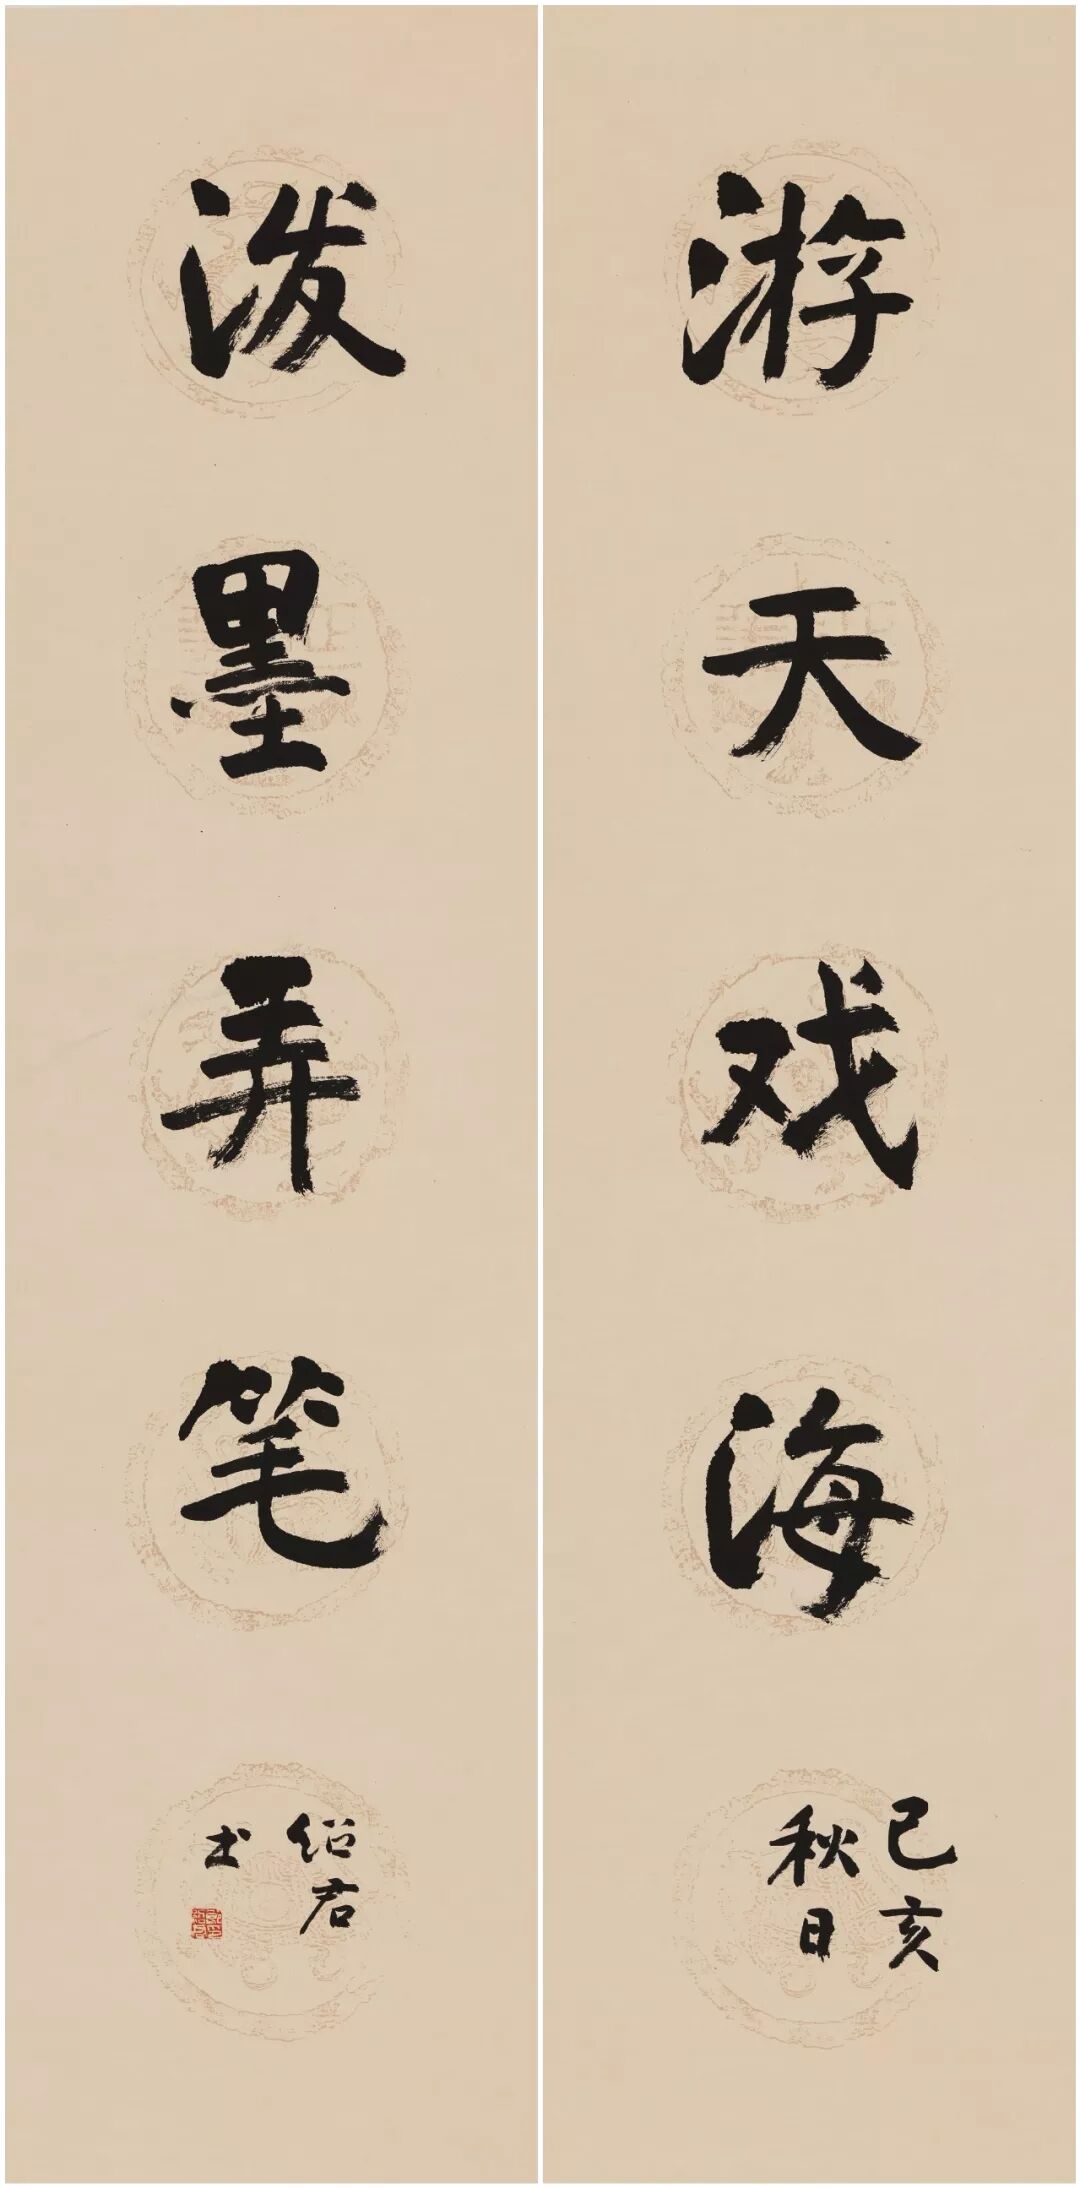 游天戏海
己亥
秋日
泼墨弄笔
绍君
书